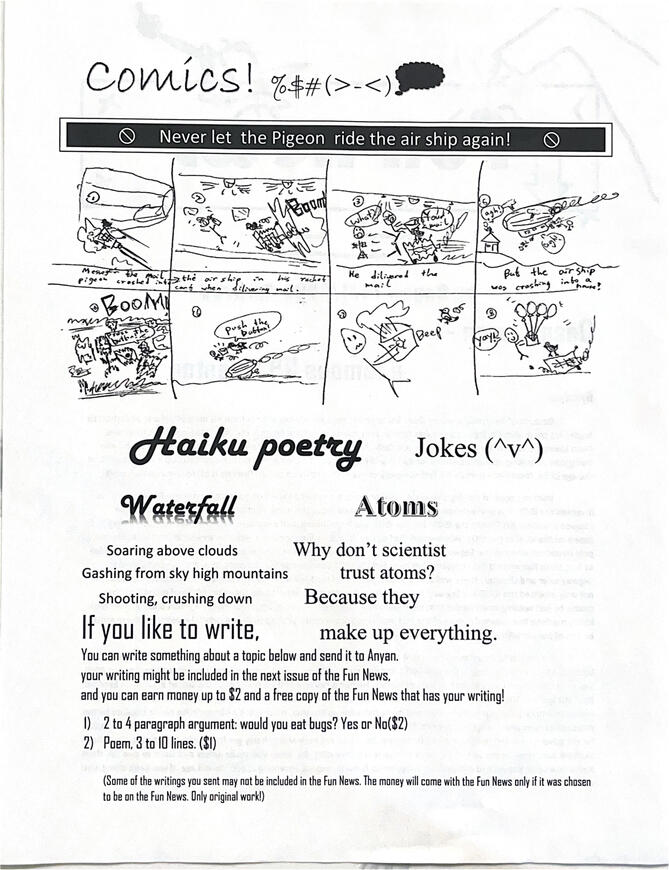 Comics! %$#(>-<)
Never let the Pigeon ride the air ship again!
Boom
the mail
pigeon crashed into the air ship in his rocket
cart when delivering mail.
What?
He dilivered the
mail
agh!
But the air ship
was crashing into a
house!
BOOM!
Push the
button
Beep
yay!
Haiku poetry
Jokes (^v^)
Waterfall
Soaring above clouds
Gashing from sky high mountains
Shooting, crushing down
Atoms
Why don't scientist
trust atoms?
Because they
make up everything.
If you like to write,
You can write something about a topic below and send it to Anyan.
your writing might be included in the next issue of the Fun News,
and you can earn money up to $2 and a free copy of the Fun News that has your writing!
1) 2 to 4 paragraph argument: would you eat bugs? Yes or No($2)
2) Poem, 3 to 10 lines. ($1)
(Some of the writings you sent may not be included in the Fun News. The money will come with the Fun News only if it was chosen
to be on the Fun News. Only original work!)